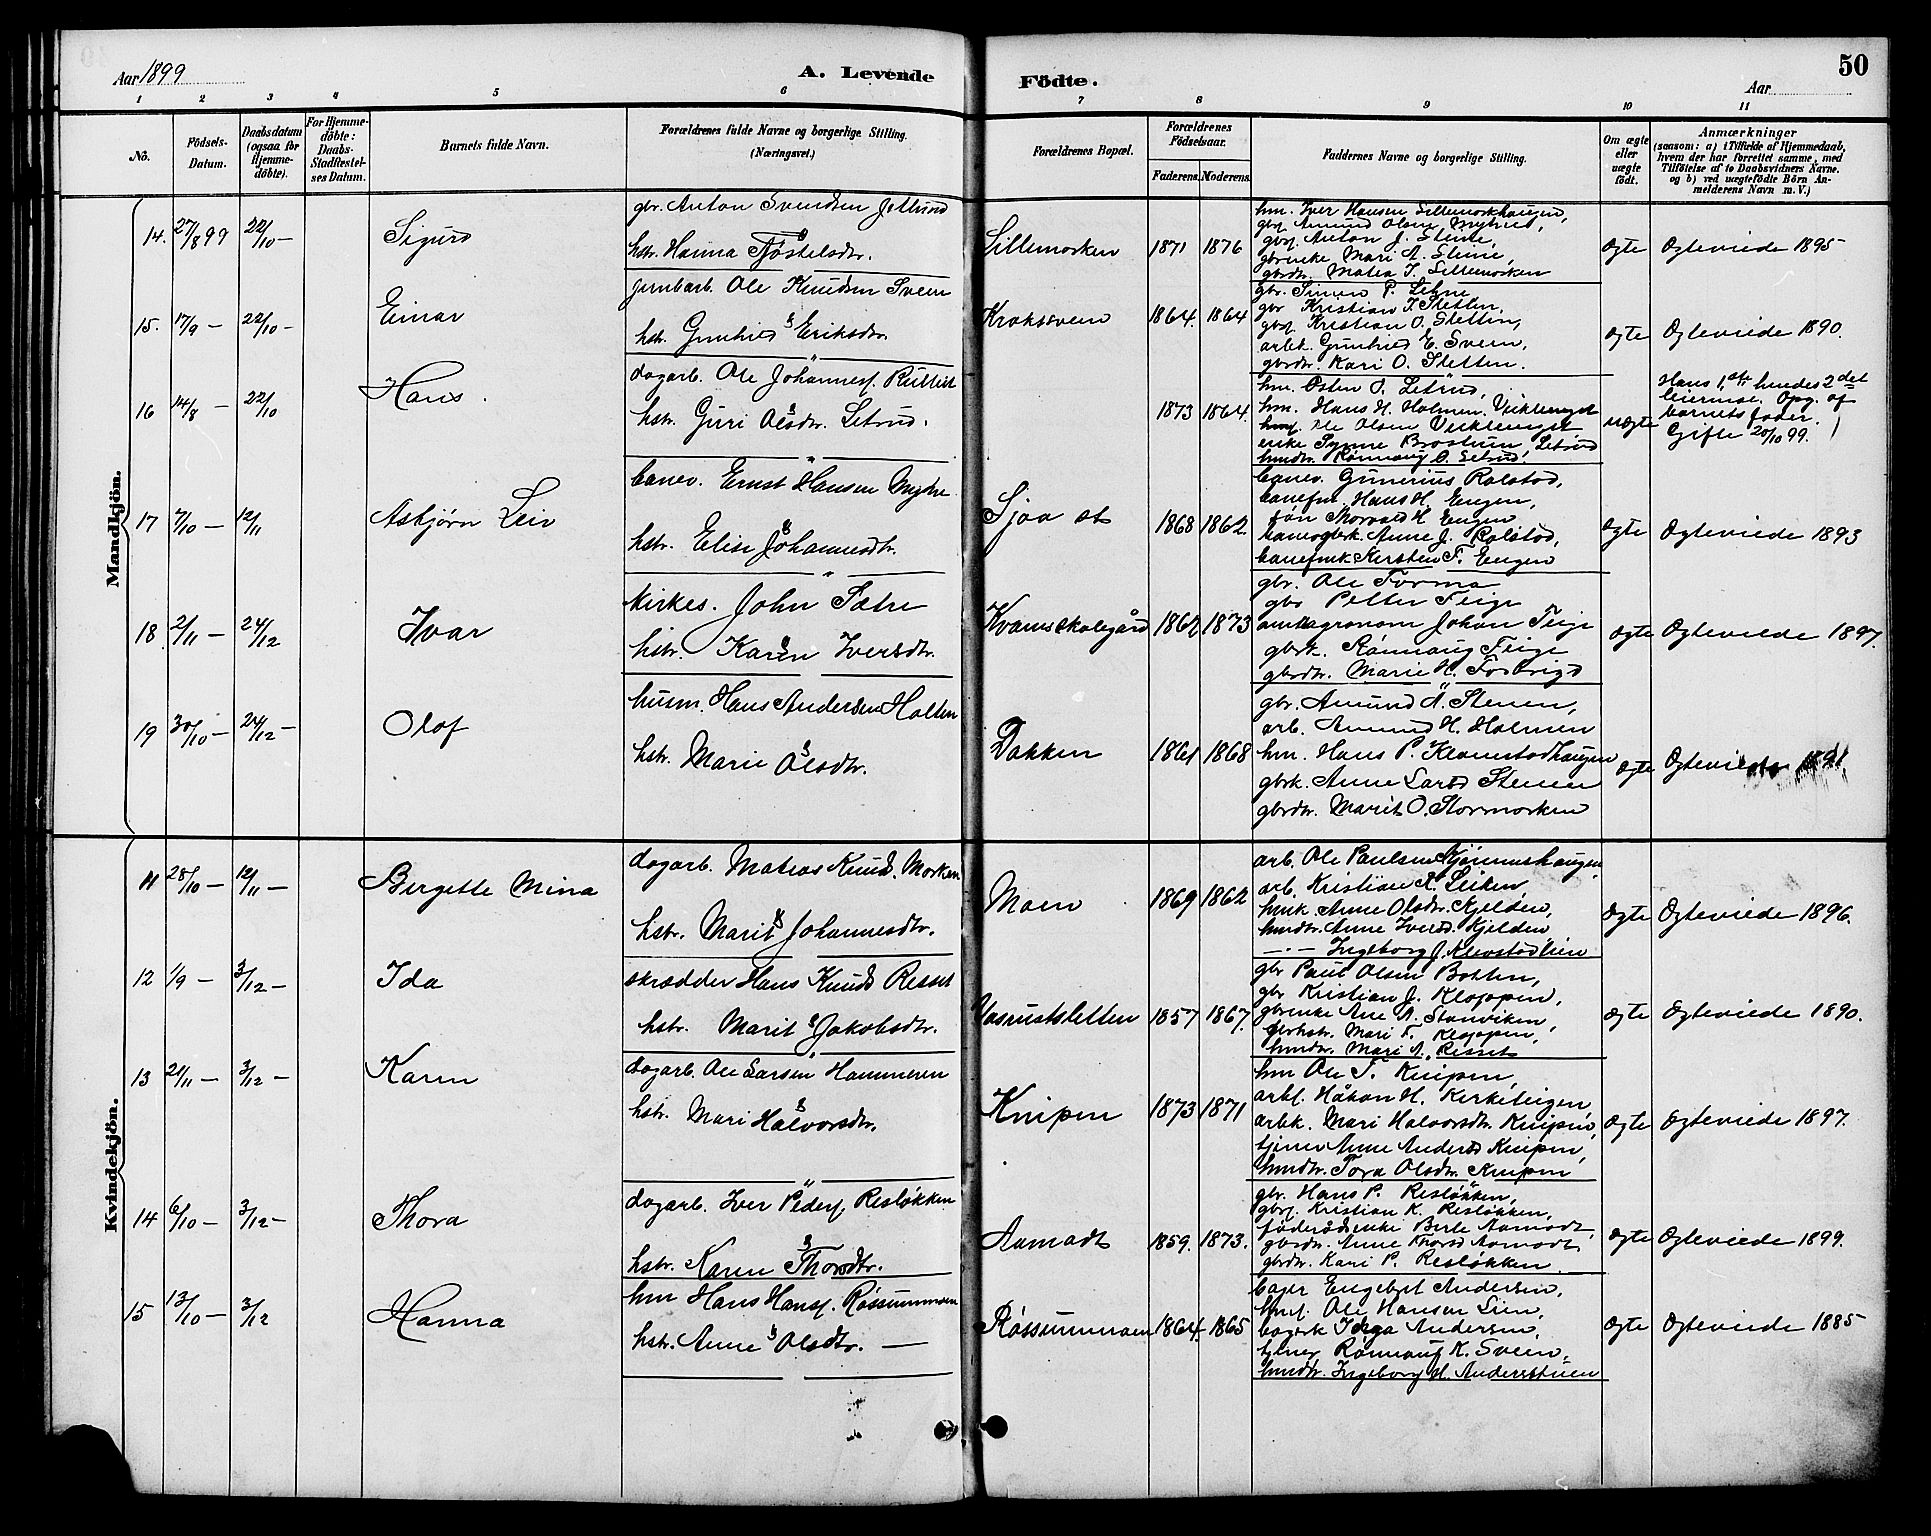 50
Aar 1899
A. Levende
Födte.
Aar
1 2 3 4 5 6 7 8 9 10 11
No.
Födsels-
Datum.
Daabsdatum
(ogsaa for
Hjemme-
döbte).
For Hjemme-
döbte:
Daabs-
Stadfæstel-
ses Datum.
Barnets fulde Navn.
Forældrenes fulde Navne og borgerlige Stilling.
(Næringsvei.)
Forældrenes Bopæl.
Forældrenes
Födselsaar.
Faderens. Moderens.
Faddernes Navne og borgerlige Stilling.
Om ægte
eller
uægte
født.
Anmærkninger
(saasom: a) i Tilfælde af Hjemmedaab,
hvem der har forrettet samme, med
Tilføielse af to Daabsvidners Navne,
og b) ved uægtefødte Börn An-
melderens Navn m. V.)
Mandkjön.
14. 27/8 99 22/10 -
Sigurd
gbr. Anton Svendsen Jetlund
hstr. Hanna Tjøstelsdtr.
Lillemorken 1871 1876
hm. Iver Hansen Lillemorkhaugen,
gbrs. Amund Olsen Myhrd,
gbrs. Anton J. Steine,
gbrenke Mari A. Steine,
gbrdtr. Matea I. Lillemorken
ægte Ægteviede 1895
15. 17/9 - 22/10 -
Einar
jernbarb. Ole Knudsen Sveen
hstr. Gunhild Eriksdtr.
Kroksveen 1864. 1864
gbr. Simen P. Lehne
gbr Kristian J. Sletten,
gbrs. Kristian O. Sletten,
arbk. Gunhild E. Sveen,
gbrdtr. Kari O. Sletten.
ægte Ægteviede 1890.
16 14/8 - 22/10
Hans.
dagarb. Ole Johannes.
hstr. Guri Olsdtr. Letrud.
1873 1864.
hm. Østen O. Letrud,
hm. Hans H. Holmen
Ole Olsen
enke Synne Letrud
hmdtr. Rønnaug O. Letrud.
uægte
Hans 1ste hendes 2det
leiermaal. Opg. af
barnets fader.
Gifte 20/10 99.
17 7/10 - 12/11
Asbjørn Leiv
banev. Ernst Hansen Myhre
hstr. Elise Johannesdtr.
Sjoa st 1868 1862.
banev. Gunerius Rolstad,
banefm. Hans H. Engen,
Thorvald H. Engen
banevogterk. Anne J. Rolstad,
banefmk Kersten F. Engen
ægte Ægteviede 1893
18. 2/11 - 24/12
Ivar
kirkes. John Sætre
hstr. Karen Iversdtr.
Kvams skolegård 1862 1873
gbr. Ole Forma
gbr Petter Teige
amtsagronom Johan Teige
gbrk. Rønnaug Teige
gbrdtr. Marie H. Forbrigd
ægte Ægteviede 1897.
19 30/10 - 24/12 -
Olaf
husm. Hans Andersen Holten
hstr. Marie Olsdtr.
Dakken 1861 1868
gbr. Amund A. Stenen,
arb. Amund H. Holmen
hm. Hans P. Klomstadhaugen
gbrk. Anne Larsd Stenen
gbrdtr. Marit O. Stormorken
ægte Ægteviede 1891
Kvindekjön.
11 28/10 - 12/11 -
Birgitte Mina
dagarb. Matias Knuds. Morken
hstr. Marit Johannesdtr.
Moen 1869 1862
arb. Ole Paulsen
arb. Kristian R. Leiken,
hmk. Anne Olsdtr. Kjelden,
hmdtr. Anne Iversd. Kjelden
- - - Ingeborg J. Klevstadlien
ægte Ægteviede 1896.
12 1/9 - 3/12 -
Ida
skrædder Hans Knuds Resset
hstr. Marit Jakobsdtr.
Vasrustsletten 1857 1867.
gbr Paul Olsen Botten,
gbr Kristian J. Kloppen,
gbrenke Ane A. Stamviken,
gbrhstr. Mari T. Kloppen,
hmdtr. Mari A. Resset
ægte Ægteviede 1890.
13 21/11 - 3/12 -
Karen
dagarb. Ole Larsen Hammeren
hstr. Mari Halvorsdtr.
Knipen 1873 1871
hm Ole T. Knipen,
arbf. Håkon H. Kirketeigen,
arbk. Mari Halvorsdtr. Knipen,
tjener Anne Andersd Knipen,
hmdtr. Tora Olsdtr. Knipen
ægte Ægteviede 1897.
14 6/10 - 3/12 -
Thora
dagarb. Iver Peders. Resløkken
hstr. Karen Thorsdtr.
Aamodt 1859. 1873.
gbr. Hans P. Resløkken,
gbrs. Kristian K. Resløkken,
føderådsenke Berte Aamodt,
gbrdtr. Anne Thorsd Aamodt,
gbrdtr. Kari P. Resløkken.
ægte Ægteviede 1899.
15 13/10 - 3/12
Hanna
hm Hans Hans. Røssummoen
hstr. Anne Olsdtr. -
Røssummoen 1864 - 1865
bager Engebret Andersen,
hms. Ole Hansen Lien,
bagerk Andersen,
tjener Rønnaug K. Sveen,
hmdtr. Ingeborg H. Andersstuen
ægte Ægteviede 1885